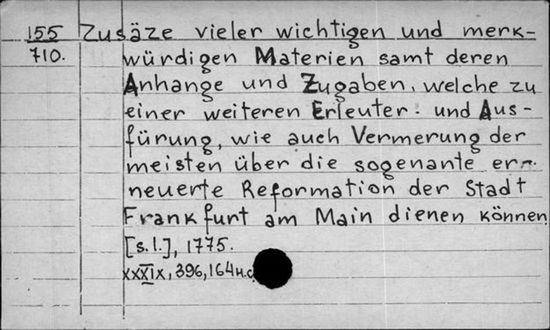 155 Zusäze vieler wichtigen und merk-
710. würdigen Materien samt deren
Anhange und Zugaben, welche zu
einer weiteren Erleuter- und Aus-
fürung, wie auch Vermerung der
meisten über die sogenante er-
neuerte Reformation der Stadt
Frankfurt am Main dienen können
[s.l.], 1775.
XXXIX, 396, 164 н.с